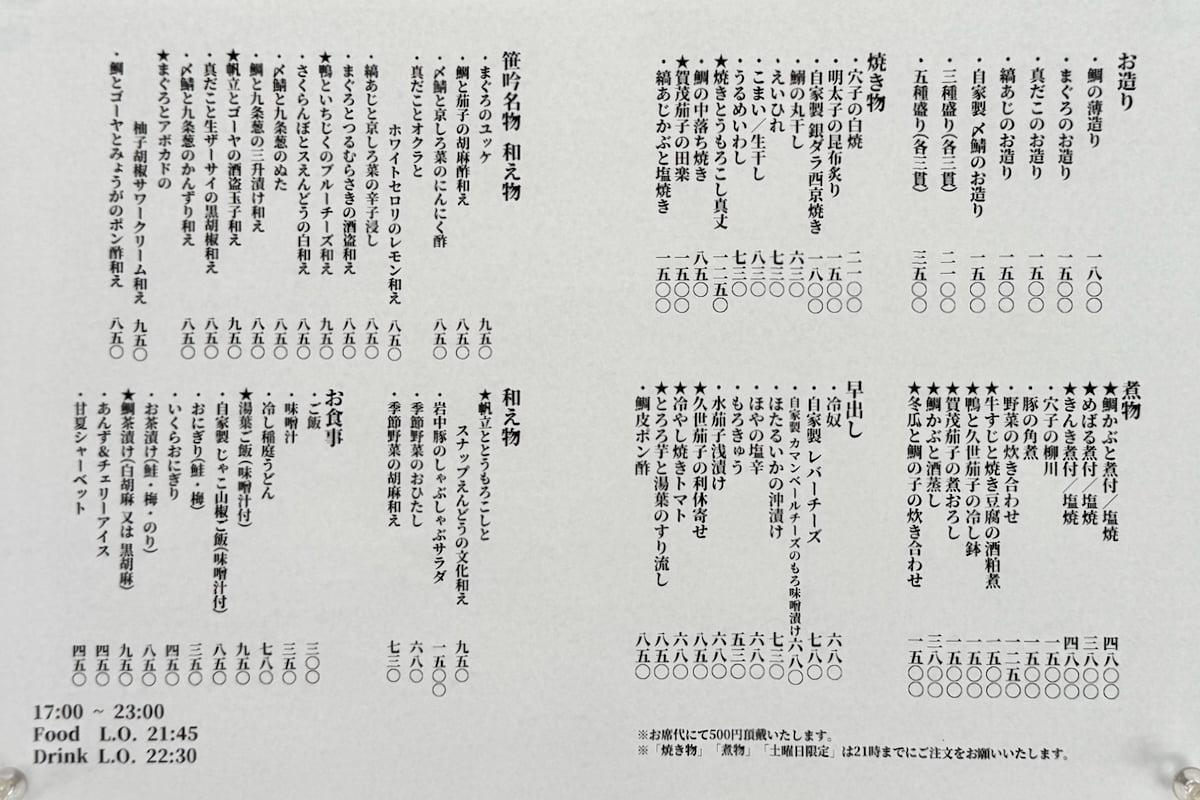 お造り
・鯛の薄造り 一八〇〇
・まぐろのお造り 一五〇〇
・真だこのお造り 一五〇〇
・縞あじのお造り 一五〇〇
・自家製 〆鯖のお造り 一五〇〇
・三種盛り(各三貫) 二一〇〇
・五種盛り(各三貫) 三五〇〇
焼き物
・穴子の白焼 二一〇〇
・明太子の昆布炙り 一五〇〇
・自家製 銀ダラ西京焼き 一八〇〇
・鰯の丸干し 六三〇
・えいひれ 七三〇
・こまい/生干し 八三〇
・うるめいわし 七三〇
★焼きとうもろこし真丈 一二五〇
・鯛の中落ち焼き 八五〇
★賀茂茄子の田楽 一五〇〇
・縞あじかぶと塩焼き 一五〇〇
煮物
★鯛かぶと煮付/塩焼 四八〇〇
★めばる煮付/塩焼 三八〇〇
★きんき煮付/塩焼 四八〇〇
・穴子の柳川 一五〇〇
・豚の角煮 一五〇〇
・野菜の炊き合わせ 一二五〇
★牛すじと焼き豆腐の酒粕煮 一五〇〇
★鴨と久世茄子の冷し鉢 一五〇〇
★賀茂茄子の煮おろし 一五〇〇
★鯛かぶと酒蒸し 三八〇〇
★冬瓜と鯛の子の炊き合わせ 一五〇〇
早出し
・冷奴 六八〇
・自家製 レバーチーズ 七八〇
・自家製 カマンベールチーズのもろ味噌漬け 六八〇
・ほたるいかの沖漬け 七三〇
・ほやの塩辛 六八〇
・もろきゅう 五三〇
・水茄子浅漬け 六八〇
★久世茄子の利休寄せ 八五〇
★冷やし焼きトマト 六八〇
★とろろ芋と湯葉のすり流し 八五〇
・鯛皮ポン酢 八五〇
※お席代にて500円頂戴いたします。
※「焼き物」「煮物」「土曜日限定」は21時までにご注文をお願いいたします。
笹吟名物 和え物
・まぐろのユッケ 九五〇
・鯛と茄子の胡麻酢和え 八五〇
・〆鯖と京しろ菜のにんにく酢 八五〇
・真だことオクラと
ホワイトセロリのレモン和え 八五〇
・縞あじと京しろ菜の辛子浸し 八五〇
・まぐろとつるむらさきの酒盗和え 八五〇
★鴨といちじくのブルーチーズ和え 九五〇
・さくらんぼとスえんどうの白和え 八五〇
・〆鯖と九条葱のぬた 八五〇
・鯛と九条葱の三升漬け和え 八五〇
★帆立とゴーヤの酒盗玉子和え 九五〇
・真だこと生ザーサイの黒胡椒和え 八五〇
・〆鯖と九条葱のかんずり和え 八五〇
★まぐろとアボカドの
柚子胡椒サワークリーム和え 九五〇
・鯛とゴーヤとみょうがのポン酢和え 八五〇
和え物
★帆立ととうもろこしと
スナップえんどうの文化和え 九五〇
・岩中豚のしゃぶしゃぶサラダ 一五〇〇
・季節野菜のおひたし 六八〇
・季節野菜の胡麻和え 七三〇
お食事
・ご飯 三〇〇
・味噌汁 三五〇
・冷し稲庭うどん 七八〇
★湯葉ご飯(味噌汁付) 九五〇
・自家製 じゃこ山椒ご飯(味噌汁付) 八五〇
・おにぎり(鮭・梅) 三五〇
・いくらおにぎり 四五〇
・お茶漬け(鮭・梅・のり) 八五〇
★鯛茶漬け(白胡麻 又は 黒胡麻) 九五〇
・あんず&チェリーアイス 四五〇
・甘夏シャーベット 四五〇
17:00 ~ 23:00
Food L.O. 21:45
Drink L.O. 22:30